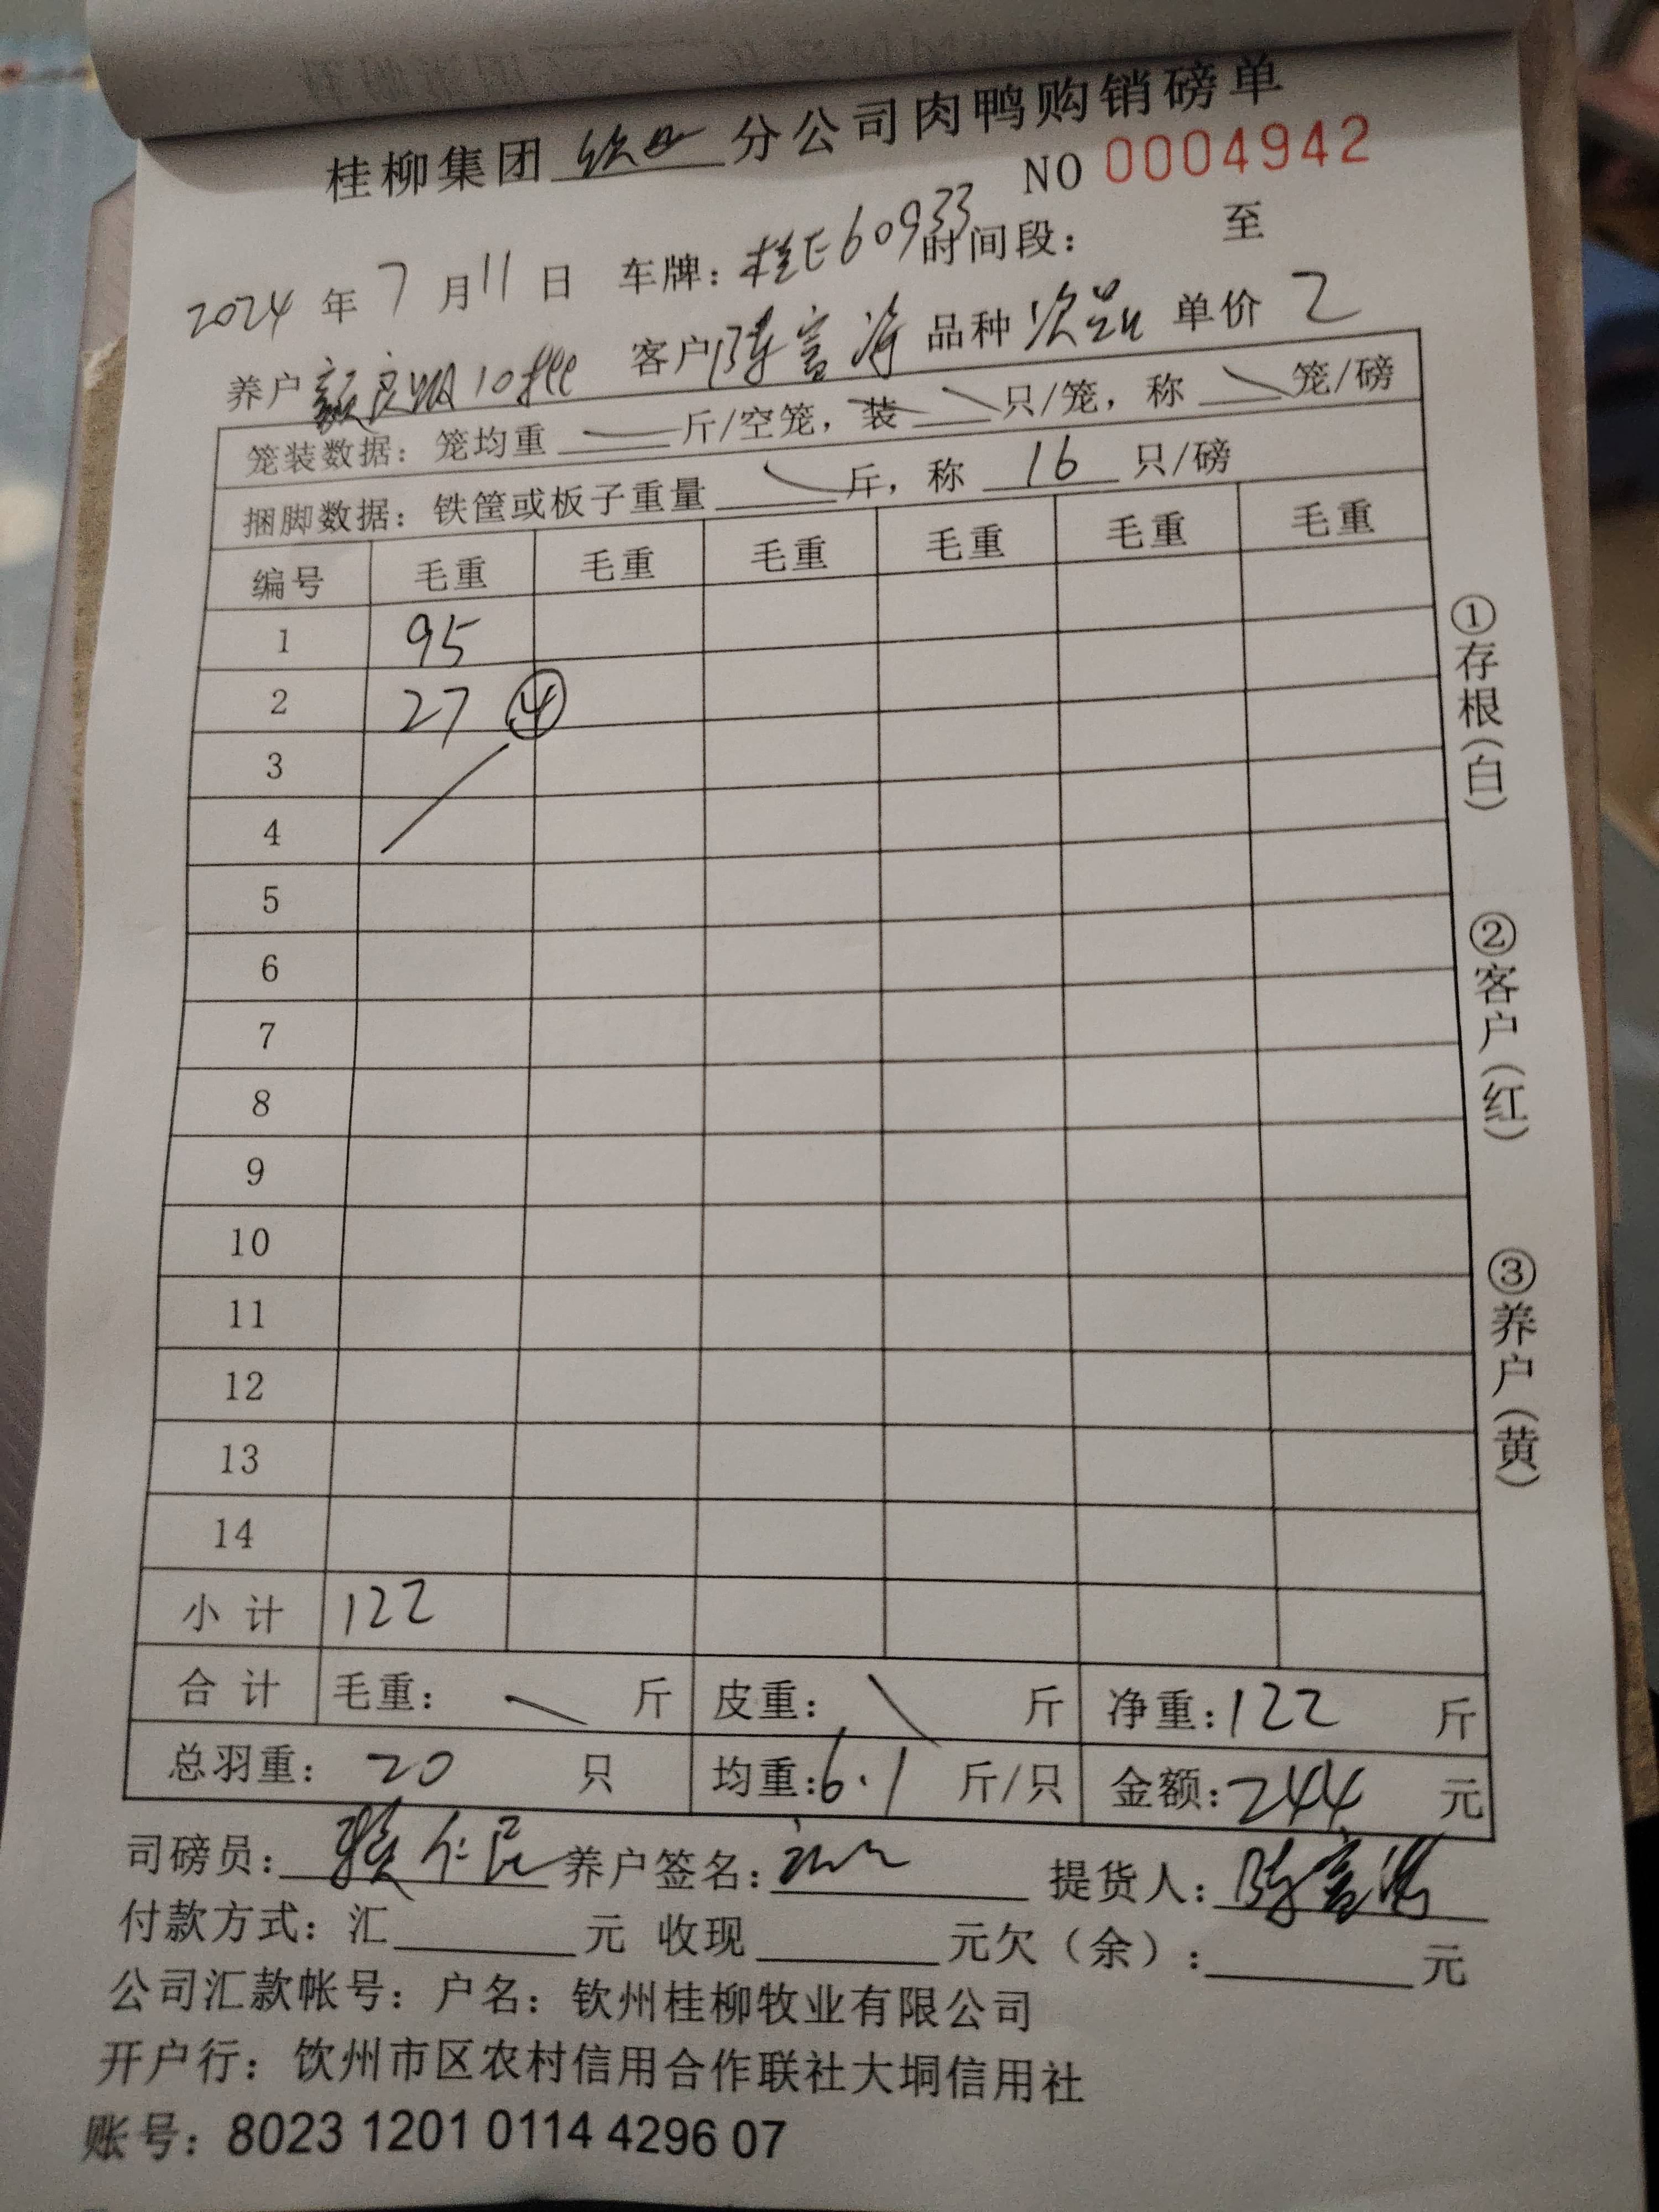 桂柳集团 钦州 分公司肉鸭购销磅单
NO 0004942
2024 年 7 月 11 日 车牌: 桂E60933 时间段: 至
养户 10批 客户 陈富 品种 次品 单价 2
笼装数据: 笼均重 斤/空笼, 装 只/笼, 称 笼/磅
捆脚数据: 铁筐或板子重量 斤, 称 16 只/磅
编号 毛重 毛重 毛重 毛重 毛重 毛重
1 95
2 27 ④
3
4
5
6
7
8
9
10
11
12
13
14
小计 122
合计 毛重: 斤 皮重: 斤 净重: 122 斤
总羽重: 20 只 均重: 6.1 斤/只 金额: 244 元
司磅员: 养户签名: 提货人: 陈富
付款方式: 汇 元 收现 元欠(余): 元
公司汇款帐号: 户名: 钦州桂柳牧业有限公司
开户行: 饮州市区农村信用合作联社大垌信用社
账号: 8023 1201 0114 4296 07
①存根(白)
②客户(红)
③养户(黄)